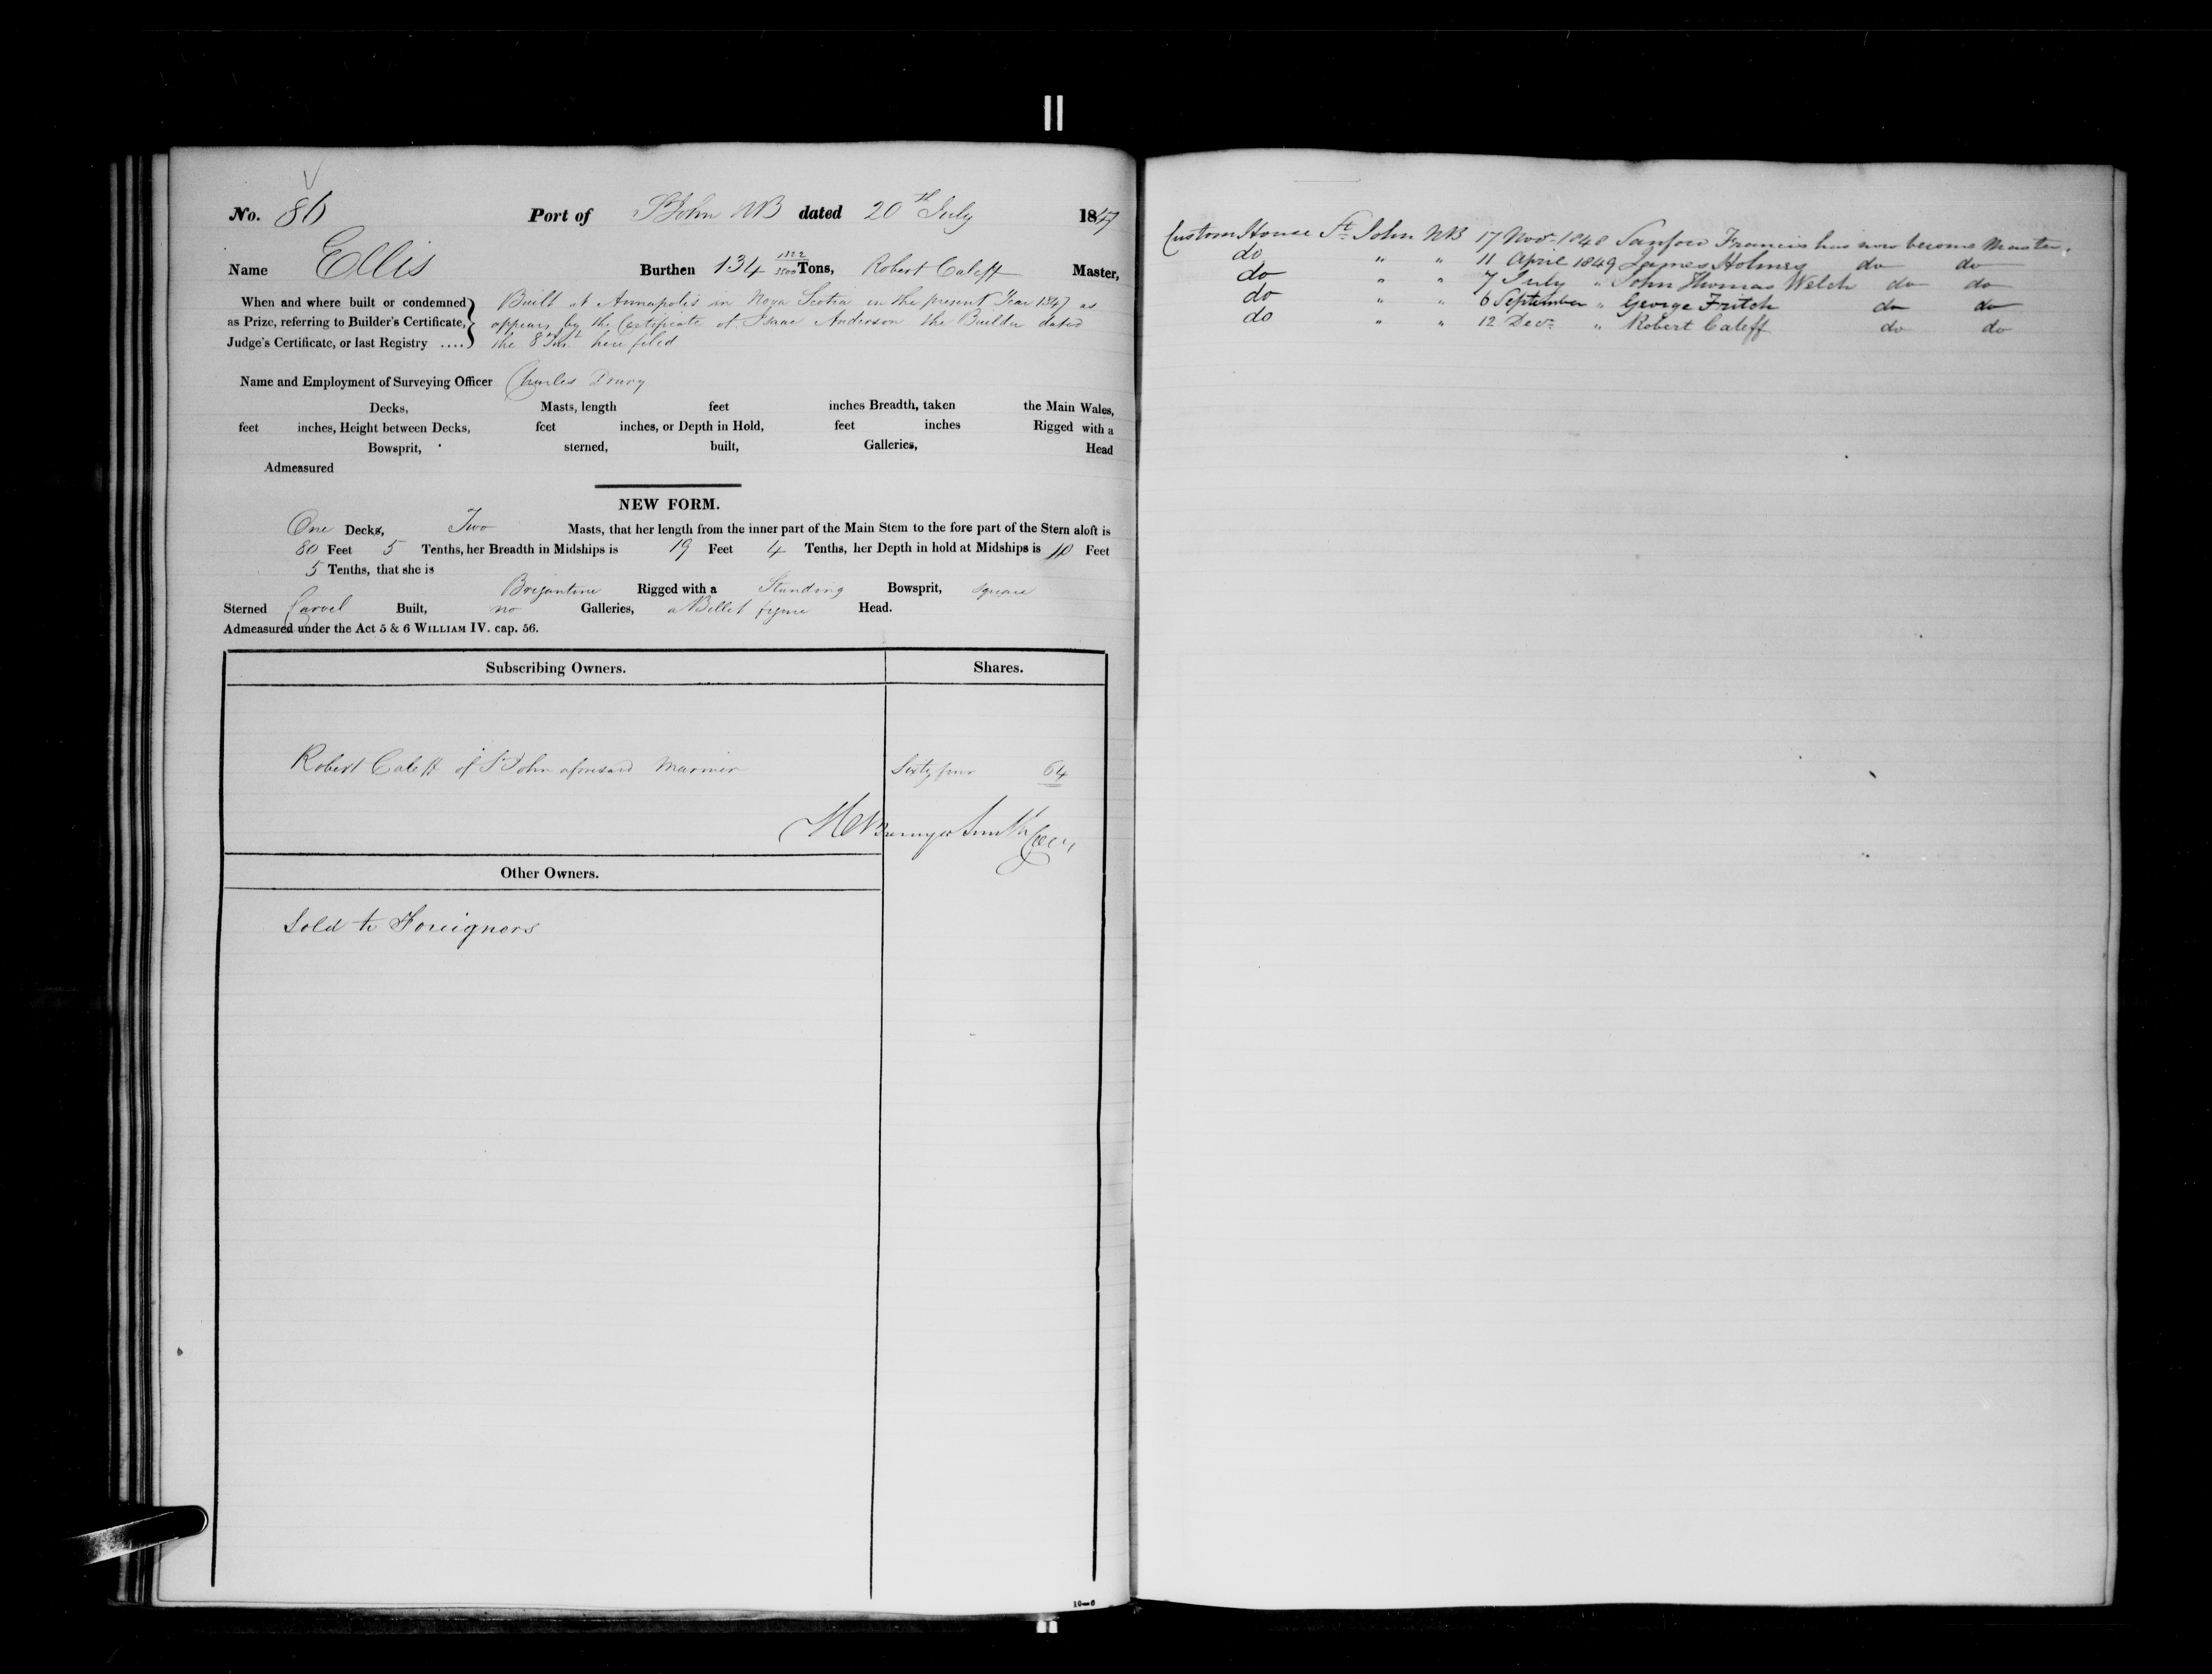 No. 86 Port of St John NB dated 20th July 1847
Name Ellis Burthen 134 1822/3500 Tons, Robert Caleff Master,
When and where built or condemned as Prize, referring to Builder's Certificate, Judge's Certificate, or last Registry ....
Built at Annapolis in Nova Scotia in the present Year 1847 as
appears by the Certificate of Isaac Anderson the Builder dated
the 8 Inst here filed
Name and Employment of Surveying Officer Charles Drury
Decks, Masts, length feet inches Breadth, taken the Main Wales,
feet inches, Height between Decks, feet inches, or Depth in Hold, feet inches Rigged with a
Bowsprit, sterned, built, Galleries, Head
Admeasured
NEW FORM.
One Decks, Two Masts, that her length from the inner part of the Main Stem to the fore part of the Stern aloft is
80 Feet 5 Tenths, her Breadth in Midships is 19 Feet 4 Tenths, her Depth in hold at Midships is 10 Feet
5 Tenths, that she is
Brigantine Rigged with a Standing Bowsprit, square
Sterned Carvel Built, no Galleries, a Billet figure Head.
Admeasured under the Act 5 & 6 WILLIAM IV. cap. 56.
Subscribing Owners. Shares.
Robert Caleff of St John aforesaid Mariner Sixty four 64
Smith
Other Owners.
Sold to Foreigners
10—6
Custom House St John NB 17 Novr 1848 Sanford Francis has now become Master.
do " " 11 April 1849 James Holmes do do
do " " 7 July " John Thomas Welch do do
do " " 6 September " George Fritch do do
do " " 12 Decr " Robert Caleff do do